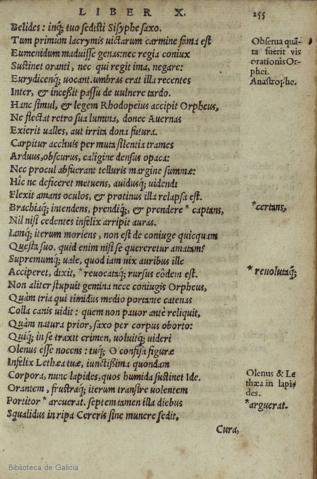 LIBER X. 255
Belides: inq́; tuo sedisti Sisyphe saxo.
Tum primum lacrymis uictarum carmine fama est
Eumenidum maduisse genas: nec regia coniux
Sustinet oranti, nec qui regit ima, negare:
Eurydicenq́; uocant. umbras erat illa recentes
Inter, & incessit passu de uulnere tardo.
Hanc simul, & legem Rhodopeius accipit Orpheus,
Ne flectat retro sua lumina, donec Auernas
Exierit ualles, aut irrita dona futura.
Carpitur accliuis per muta silentia trames
Arduus, obscurus, caligine densus opaca:
Nec procul abfuerant telluris margine summæ:
Hic ne deficeret metuens, auidusq́; uidendi
Flexit amans oculos, & protinus illa relapsa est.
Brachiaq́; intendens, prendiq́;, & prendere * captans,
Nil nisi cedentes infelix arripit auras.
Iamq́; iterum moriens, non est de coniuge quicquam
Questa suo. quid enim nisi se quereretur amatam?
Supremumq́; uale, quod iam uix auribus ille
Acciperet, dixit, * reuocataq́; rursus eôdem est.
Non aliter stupuit gemina nece coniugis Orpheus,
Quàm tria qui timidus medio portante catenas
Colla canis uidit: quem non pauor antè reliquit,
Quàm natura prior, saxo per corpus oborto:
Quiq́; in se traxit crimen, uoluitq́; uideri
Olenus esse nocens: tuq́; ô confisa figuræ
Infelix Lethæa tuæ, iunctissima quondam
Corpora, nunc lapides, quos humida sustinet Ide.
Orantem, frustraq́; iterum transire uolentem
Portitor * arcuerat. septem tamen illa diebus
Squalidus in ripa Cereris sine munere sedit.
Cura,
Obserua quã-
ta fuerit vis
orationis Or-
phei.
Anastrophe.
*certans,
* reuolutaq́;
Olenus & Le
thæa in lapi
des.
*arguerat.
Biblioteca de Galicia